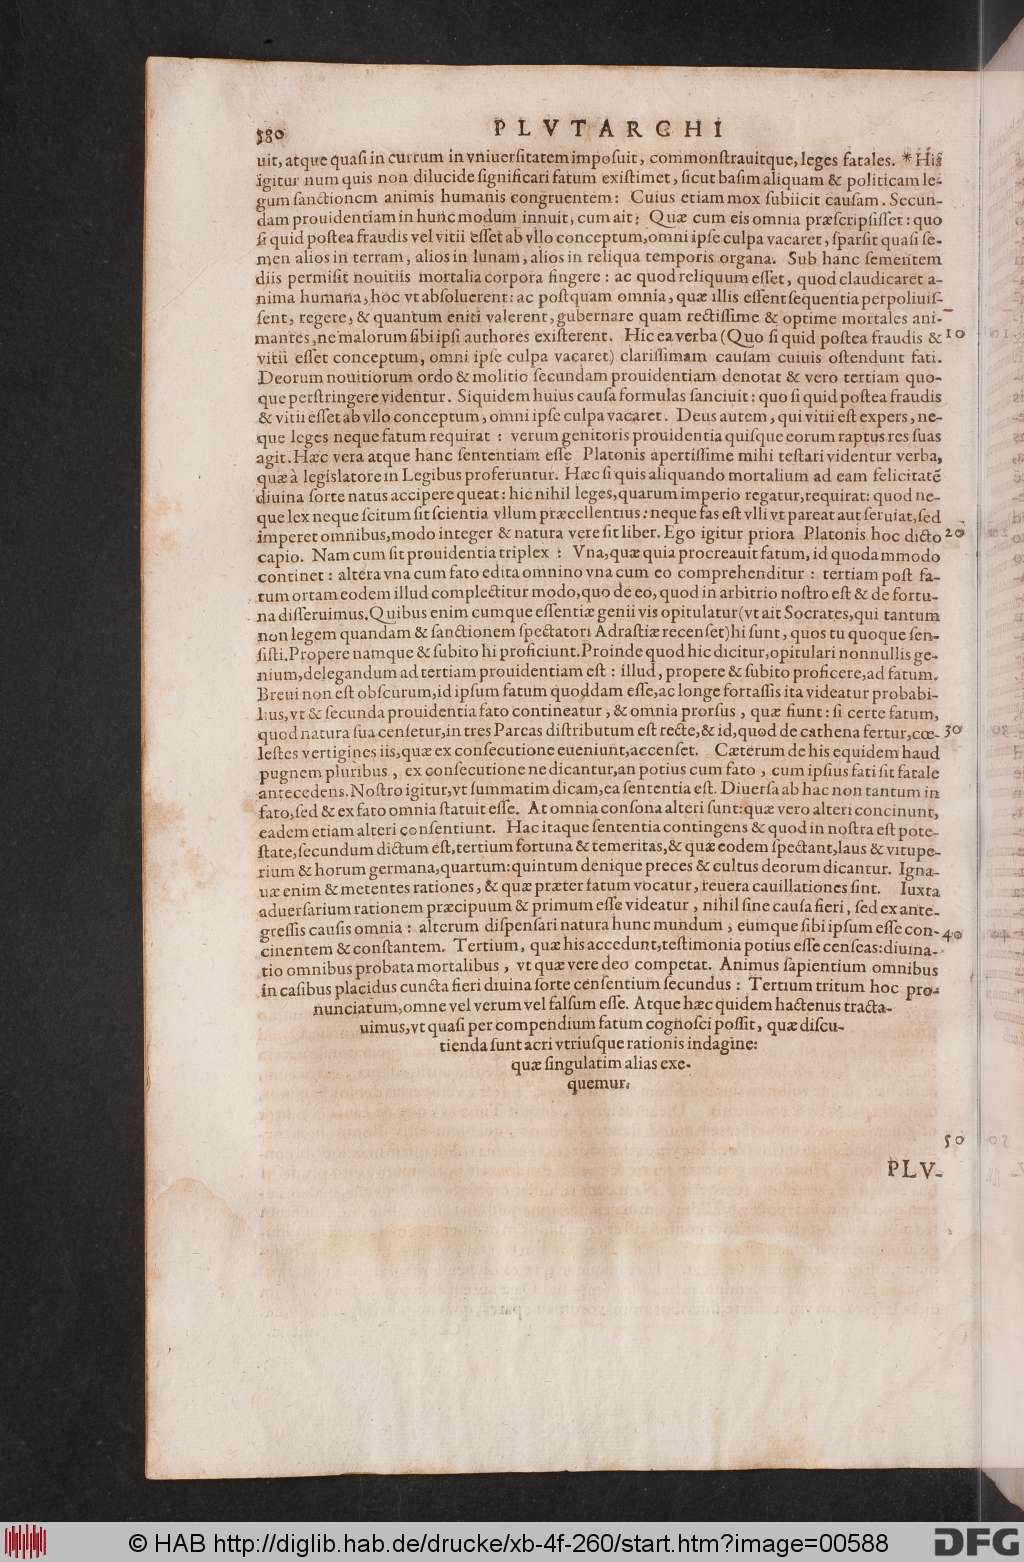 580
PLVTARCHI
uit, atque quaſi in currum in vniuerſitatem impoſuit, commonſtrauitque, leges fatales. * His
igitur num quis non dilucide ſignificari fatum exiſtimet, ſicut baſim aliquam & politicam le-
gum ſanctionem animis humanis congruentem: Cuius etiam mox ſubiicit cauſam. Secun-
dam prouidentiam in hunc modum innuit, cum ait: Quæ cum eis omnia præſcripſiſſet: quo
ſi quid poſtea fraudis vel vitii eſſet ab vllo conceptum, omni ipſe culpa vacaret, ſparſit quaſi ſe-
men alios in terram, alios in lunam, alios in reliqua temporis organa. Sub hanc ſementem
diis permiſit nouitiis mortalia corpora fingere: ac quod reliquum eſſet, quod claudicaret a-
nima humana, hoc vt abſoluerent: ac poſtquam omnia, quæ illis eſſent ſequentia perpoliuiſ-
ſent, regere, & quantum eniti valerent, gubernare quam rectiſſime & optime mortales ani-
mantes, ne malorum ſibi ipſi authores exiſterent. Hic ea verba (Quo ſi quid poſtea fraudis & 10
vitii eſſet conceptum, omni ipſe culpa vacaret) clariſſimam cauſam cuiuis oſtendunt fati.
Deorum nouitiorum ordo & molitio ſecundam prouidentiam denotat & vero tertiam quo-
que perſtringere videntur. Siquidem huius cauſa formulas ſanciuit: quo ſi quid poſtea fraudis
& vitii eſſet ab vllo conceptum, omni ipſe culpa vacaret. Deus autem, qui vitii eſt expers, ne-
que leges neque fatum requirat: verum genitoris prouidentia quiſque eorum raptus res ſuas
agit. Hæc vera atque hanc ſententiam eſſe Platonis apertiſſime mihi teſtari videntur verba,
quæ à legiſlatore in Legibus proferuntur. Hæc ſi quis aliquando mortalium ad eam felicitatẽ
diuina ſorte natus accipere queat: hic nihil leges, quarum imperio regatur, requirat: quod ne-
que lex neque ſcitum ſit ſcientia vllum præcellentius: neque fas eſt vlli vt pareat aut ſeruiat, ſed
imperet omnibus, modo integer & natura vere ſit liber. Ego igitur priora Platonis hoc dicto 20
capio. Nam cum ſit prouidentia triplex: Vna, quæ quia procreauit fatum, id quodammodo
continet: altera vna cum fato edita omnino vna cum eo comprehenditur: tertiam poſt fa-
tum ortam eodem illud complectitur modo, quo de eo, quod in arbitrio noſtro eſt & de fortu-
na diſſeruimus. Quibus enim cumque eſſentiæ genii vis opitulatur (vt ait Socrates, qui tantum
non legem quandam & ſanctionem ſpectatori Adraſtiæ recenſet) hi ſunt, quos tu quoque ſen-
ſiſti. Propere namque & ſubito hi proficiunt. Proinde quod hic dicitur, opitulari nonnullis ge-
nium, delegandum ad tertiam prouidentiam eſt: illud, propere & ſubito proficere, ad fatum.
Breui non eſt obſcurum, id ipſum fatum quoddam eſſe, ac longe fortaſſis ita videatur probabi-
lius, vt & ſecunda prouidentia fato contineatur, & omnia prorſus, quæ fiunt: ſi certe fatum,
quod natura ſua cenſetur, in tres Parcas diſtributum eſt recte, & id, quod de cathena fertur, cœ- 30
leſtes vertigines iis, quæ ex conſecutione eueniunt, accenſet. Cæterum de his equidem haud
pugnem pluribus, ex conſecutione ne dicantur, an potius cum fato, cum ipſius fati ſit fatale
antecedens. Noſtro igitur, vt ſummatim dicam, ea ſententia eſt. Diuerſa ab hac non tantum in
fato, ſed & ex fato omnia ſtatuit eſſe. At omnia conſona alteri ſunt: quæ vero alteri concinunt,
eadem etiam alteri conſentiunt. Hac itaque ſententia contingens & quod in noſtra eſt pote-
ſtate, ſecundum dictum eſt, tertium fortuna & temeritas, & quæ eodem ſpectant, laus & vitupe-
rium & horum germana, quartum: quintum denique preces & cultus deorum dicantur. Igna-
uæ enim & metentes rationes, & quæ præter fatum vocatur, reuera cauillationes ſint. Iuxta
aduerſarium rationem præcipuum & primum eſſe videatur, nihil ſine cauſa fieri, ſed ex ante-
greſſis cauſis omnia: alterum diſpenſari natura hunc mundum, eumque ſibi ipſum eſſe con- 40
cinentem & conſtantem. Tertium, quæ his accedunt, teſtimonia potius eſſe cenſeas: diuina-
tio omnibus probata mortalibus, vt quæ vere deo competat. Animus ſapientium omnibus
in caſibus placidus cuncta fieri diuina ſorte cenſentium ſecundus: Tertium tritum hoc pro-
nunciatum, omne vel verum vel falſum eſſe. Atque hæc quidem hactenus tracta-
uimus, vt quaſi per compendium fatum cognoſci poſſit, quæ diſcu-
tienda ſunt acri vtriuſque rationis indagine:
quæ ſingulatim alias exe-
quemur.
50
PLV-
© HAB http://diglib.hab.de/drucke/xb-4f-260/start.htm?image=00588
DFG